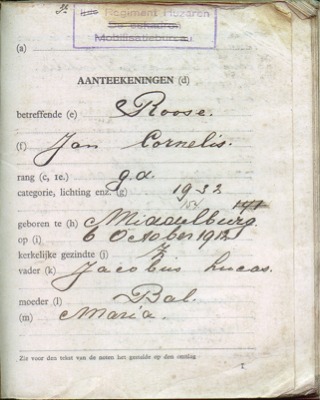 Regiment Huzaren
Mobilisatiebureau
(a)
AANTEEKENINGEN (d)
betreffende (e) Roose.
(f) Jan Cornelis.
rang (c, 1e.) gd.
categorie, lichting enz. (g) 1932
geboren te (h) Middelburg
op (i) 6 October 1912
kerkelijke gezindte (j)
vader (k) Jacobus Lucas.
moeder (l) Bal.
(m) Maria.
Zie voor den tekst van de noten het gestelde op den omslag
1